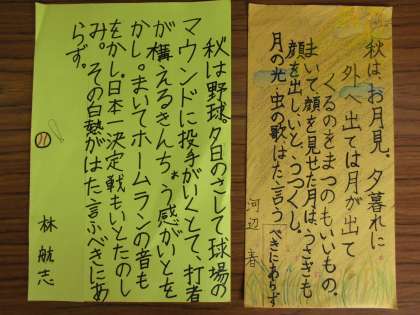 秋は、お月見。夕暮れに
外へ出ては月が出て
くるのをまつのもいいもの。
まいて顔を見せた月は、うさぎも
顔を出し、いと、うつくし。
月の光・虫の歌はた言うべきにあらず
河辺 春
秋は野球。夕日のさして球場の
マウンドに投手がいくとて、打者
が構えるきんちょう感がいとを
かし。まいてホームランの音も
をかし。日本一決定戦もいとたのし
み。その白熱がはた言ふべきにあ
らず。
林 航志